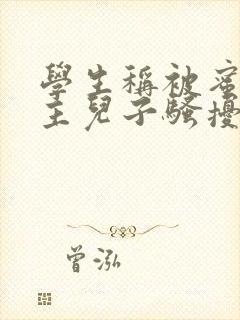 學生稱被
主兒子騷擾
曾泓